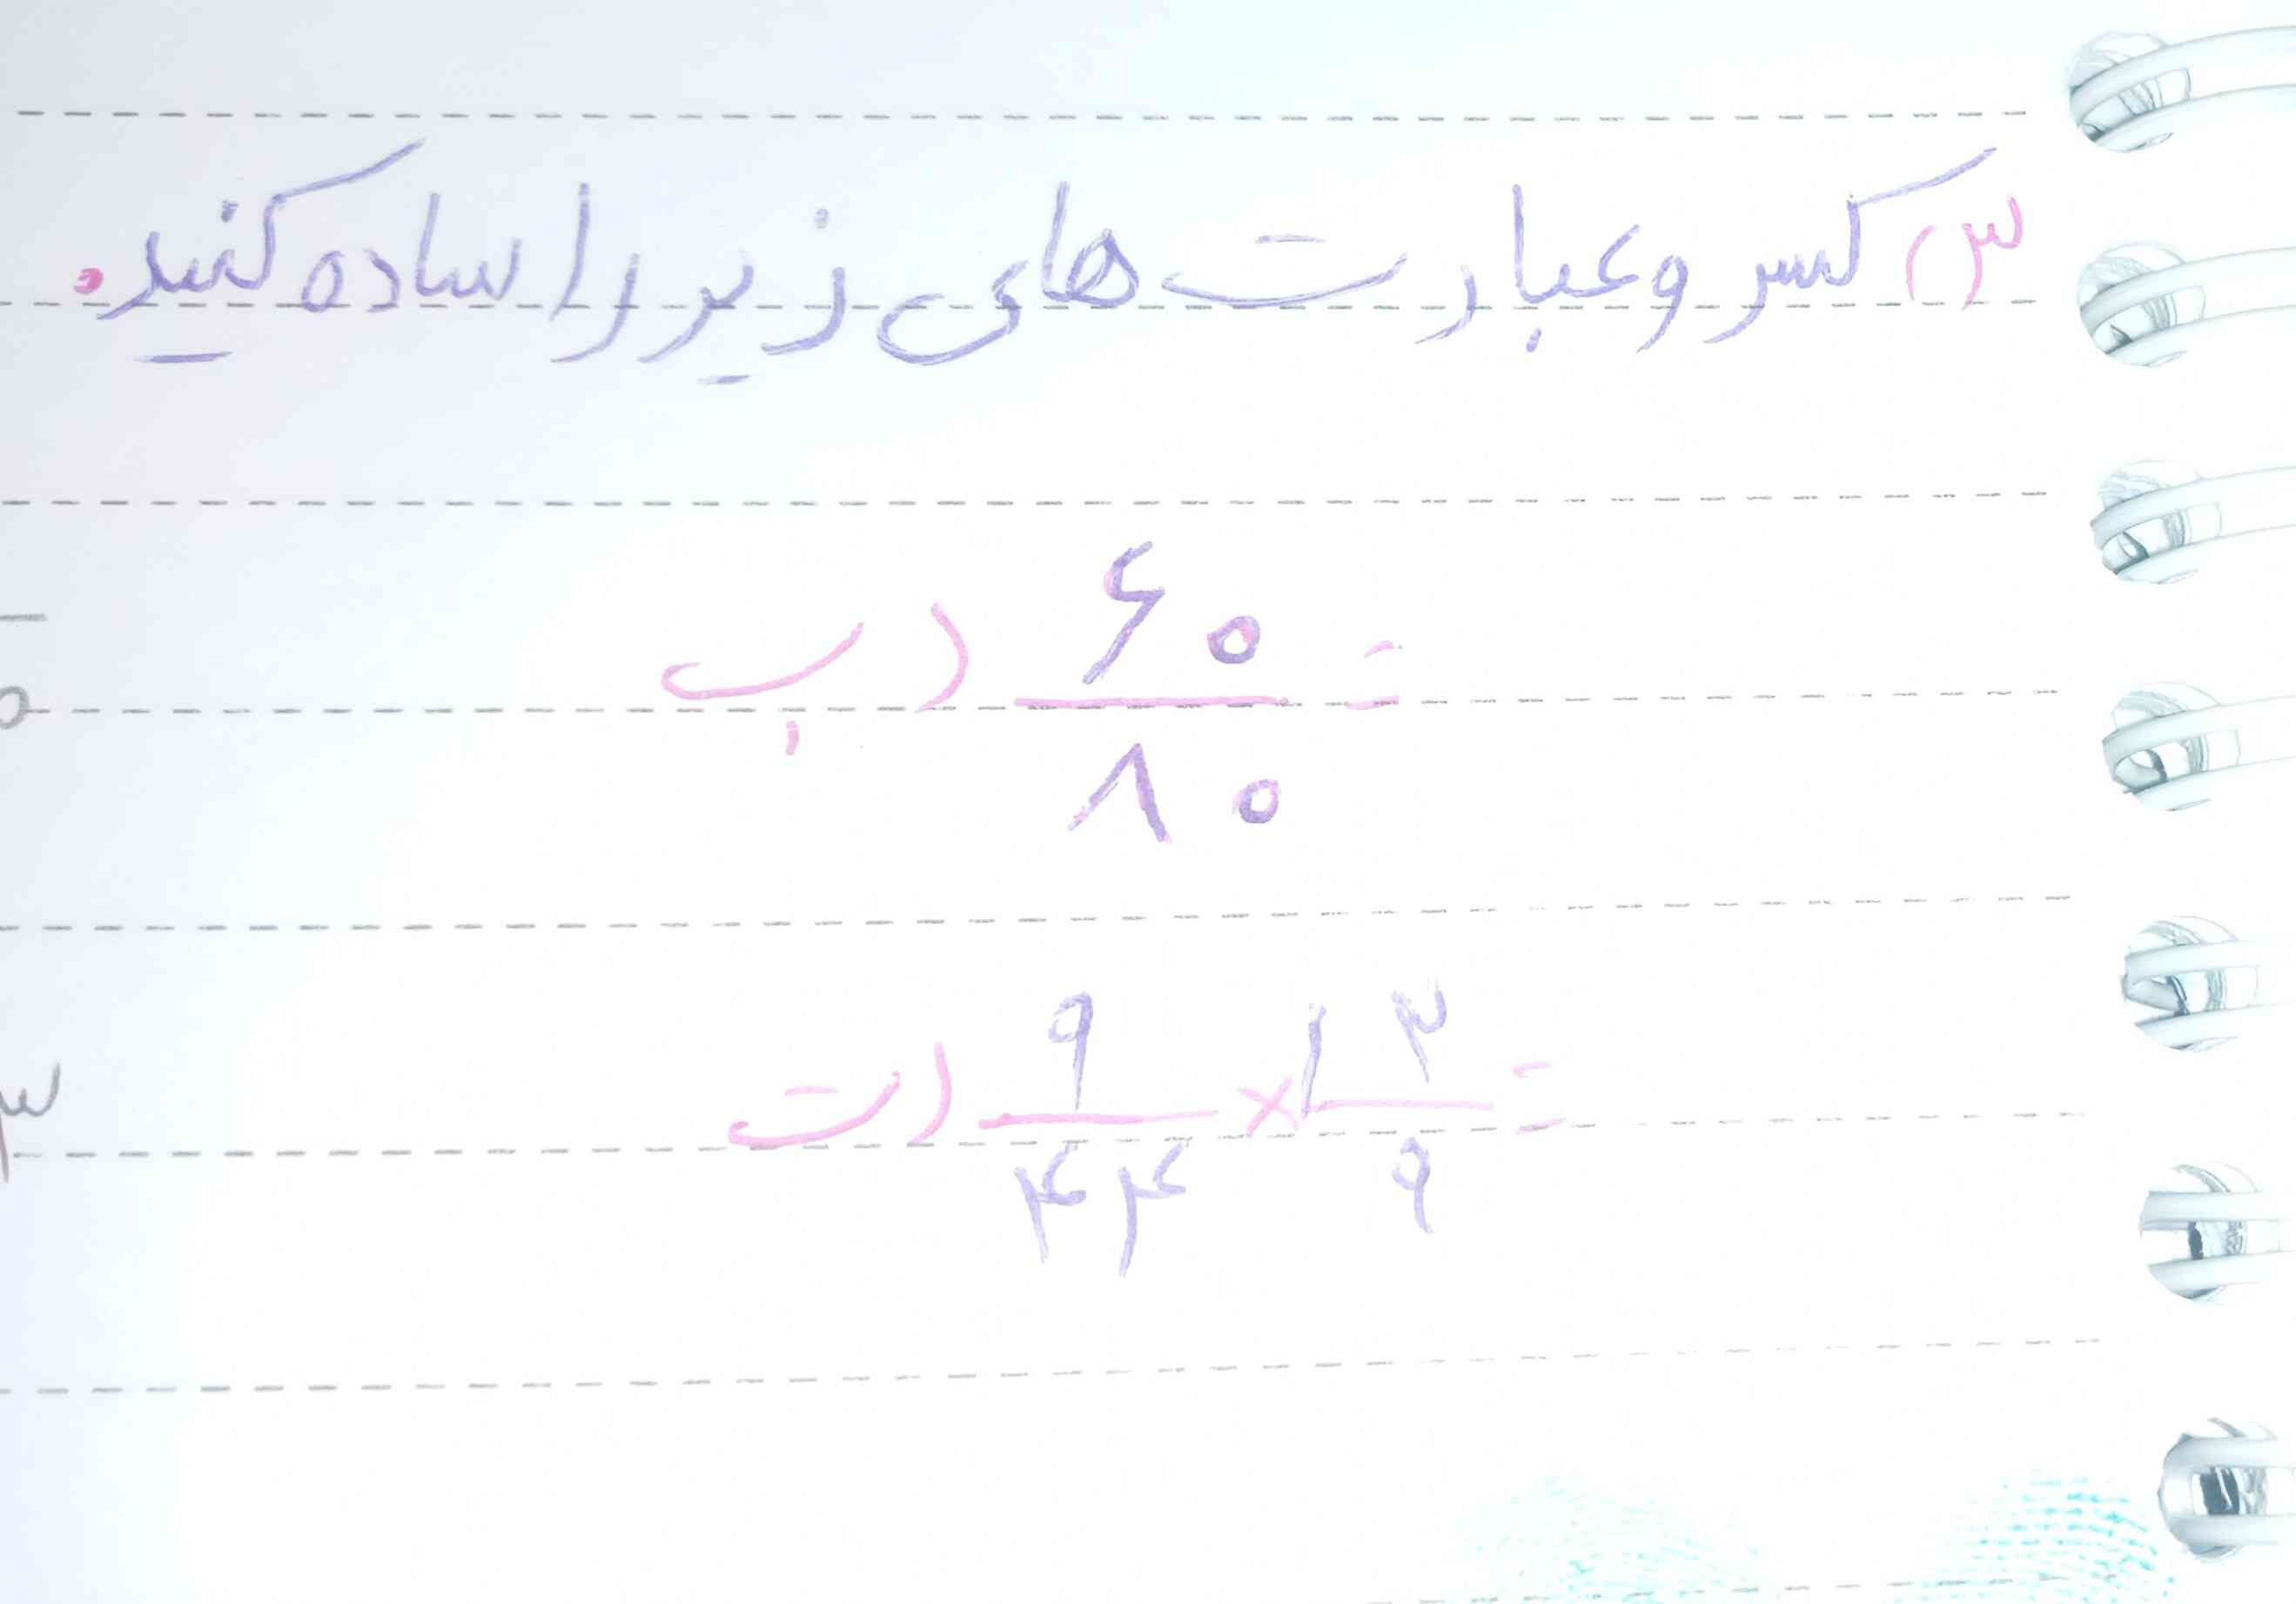 ۳) کسر و عبارت های زیر را ساده کنید.
ب) ۶۰/۸۰ =
ت) ۹/۴۴ × ۱۳/۹ =